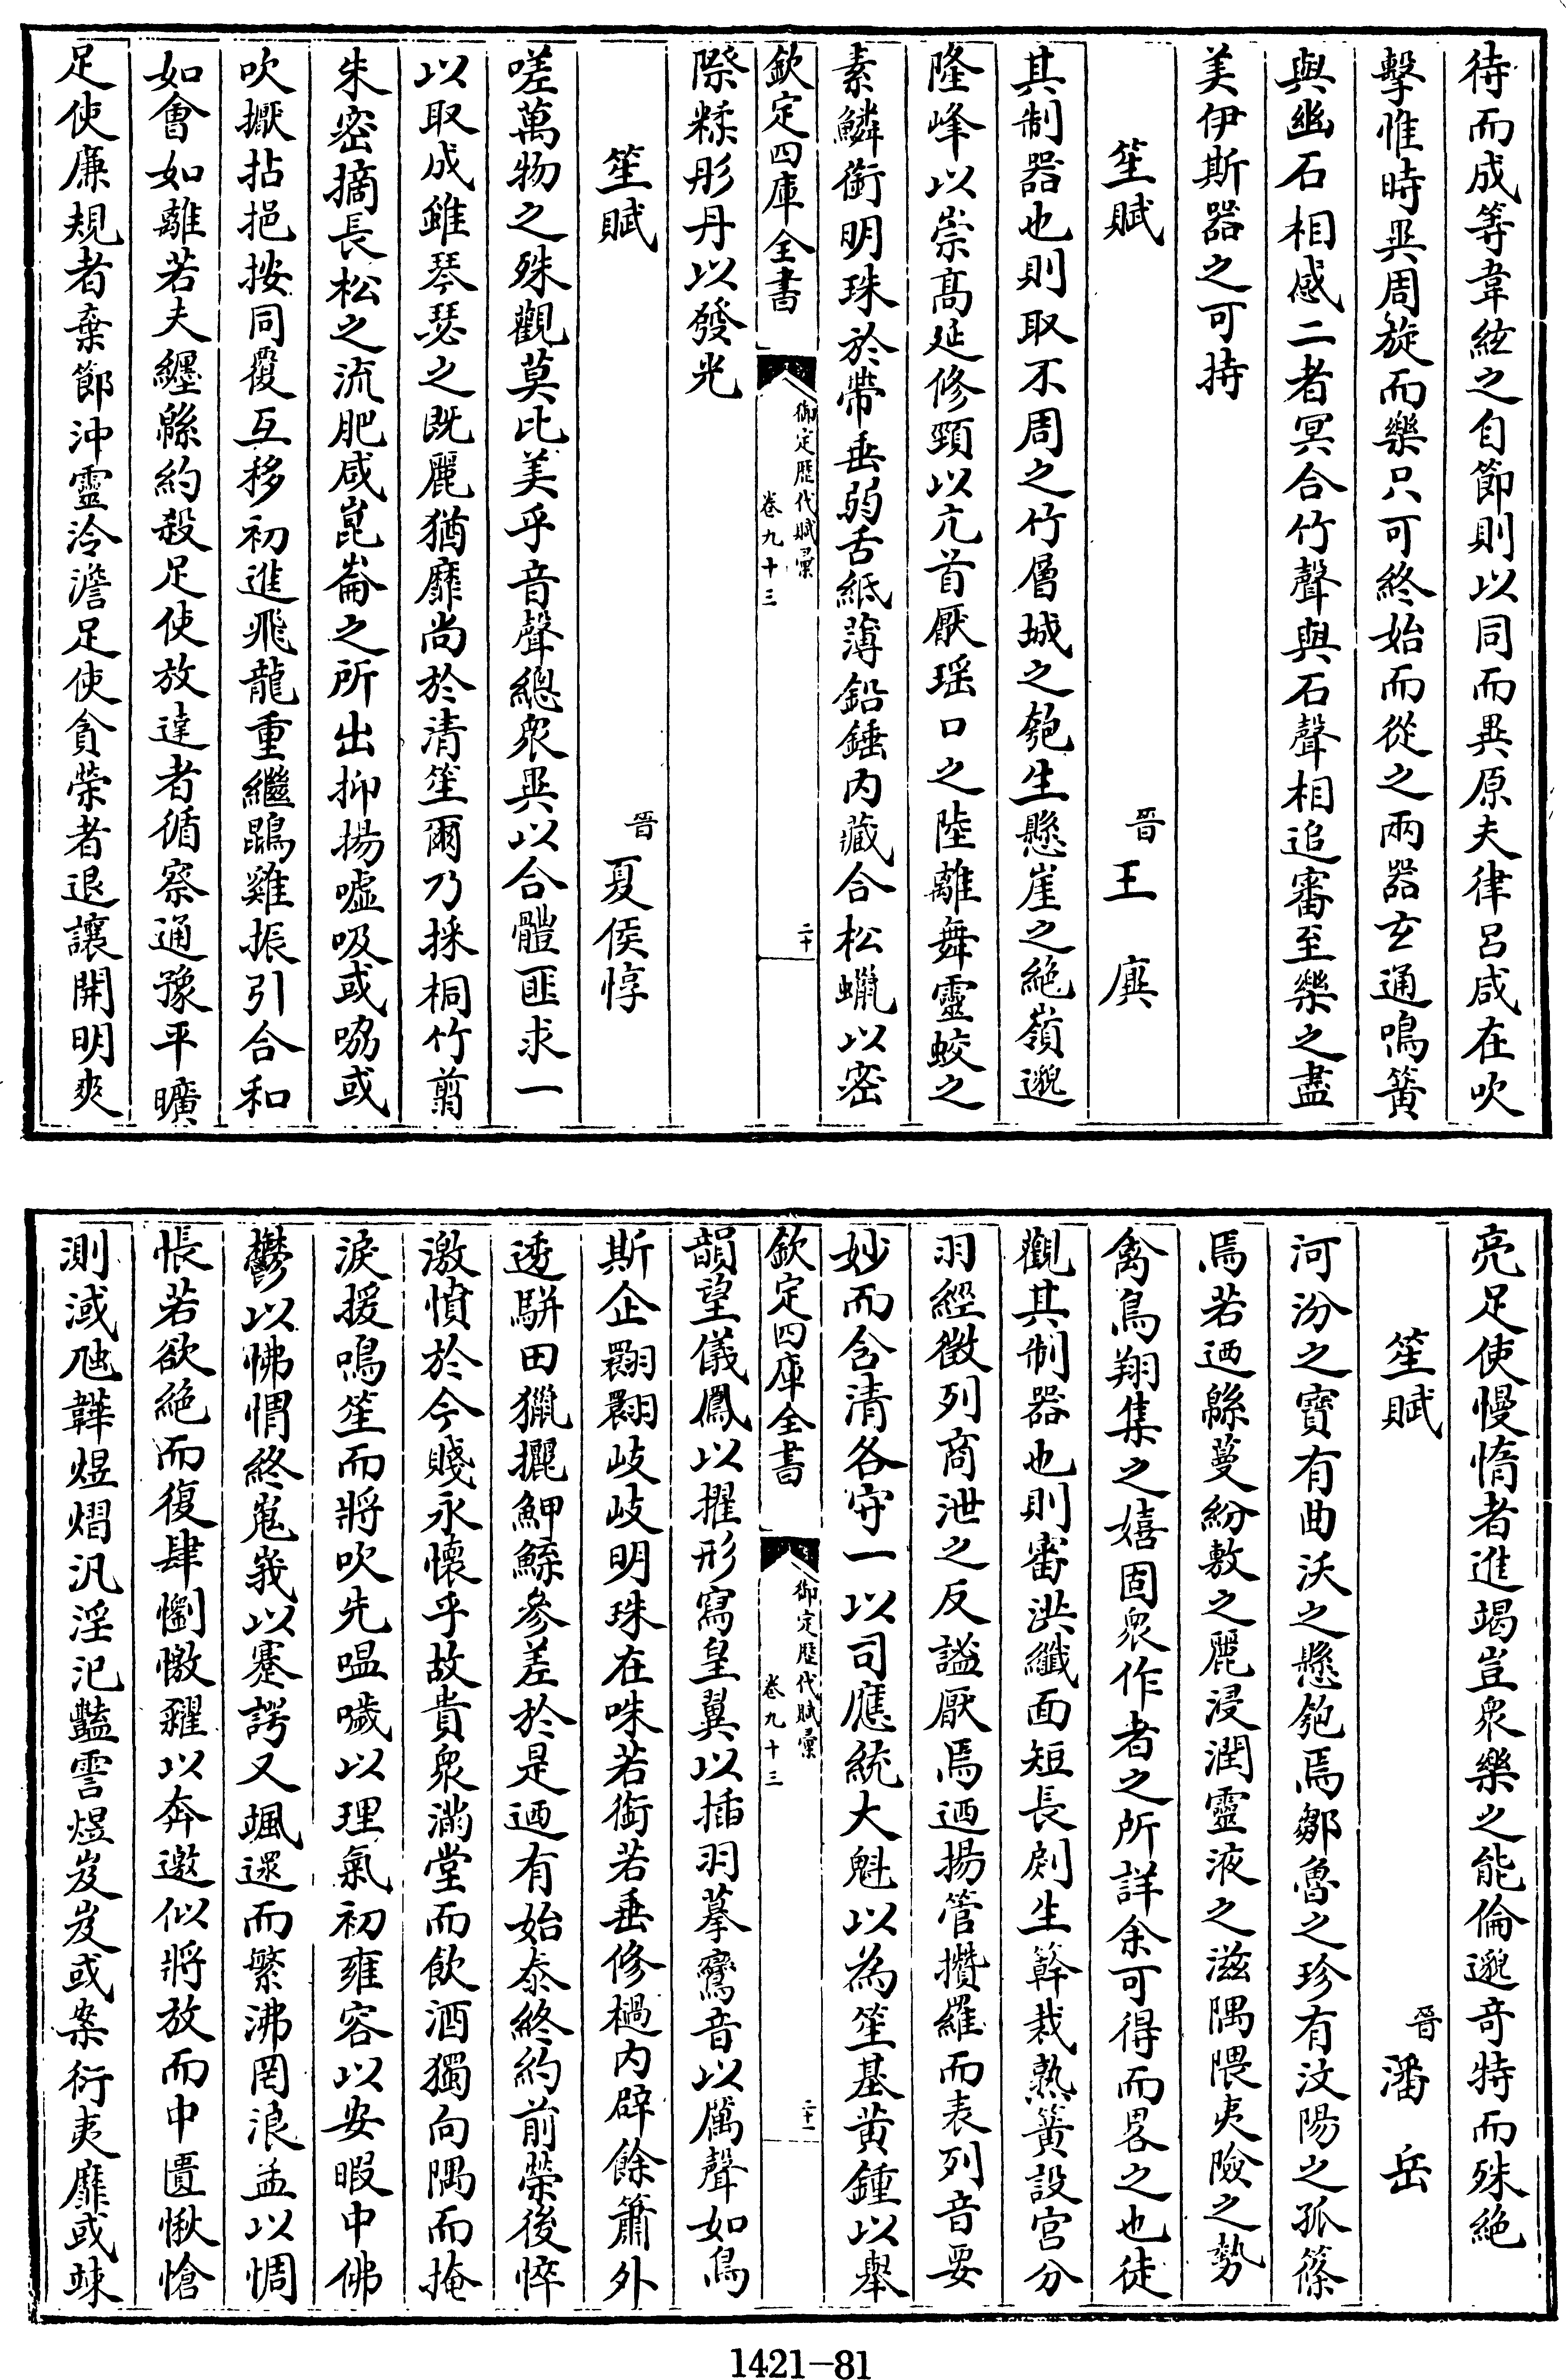 待而成等韋絃之自節則以同而異原夫律呂咸在吹
擊惟時異周旋而樂只可終始而從之兩器玄通鳴簧
與幽石相感二者冥合竹聲與石聲相追審至樂之盡
美伊斯器之可持
笙賦 晉 王廙
其制器也則取不周之竹層城之匏生懸崖之絶嶺邈
隆峰以崇髙延修頸以亢首厭瑶口之陸離舞靈蛟之
素鱗銜明珠於帶垂弱舌紙薄鉛錘内藏合松蠟以密
欽定四庫全書 御定歷代賦彙 卷九十三 二十
際糅彤丹以發光
笙賦 晉 夏侯惇
嗟萬物之殊觀莫比美乎音聲總衆異以合體匪求一
以取成雖琴瑟之既麗猶靡尚於清笙爾乃採桐竹翦
朱密摘長松之流肥咸崑崙之所出抑揚嘘吸或㗶或
吹擫拈挹按同覆互移初進飛龍重繼鵾雞振引合和
如會如離若夫纒緜約殺足使放達者循察通豫平曠
足使廉規者棄節沖靈冷澹足使貪榮者退讓開明爽
亮足使慢惰者進竭豈衆樂之能倫邈奇特而殊絶
笙賦 晉 潘岳
河汾之寶有曲沃之懸匏焉鄒魯之珍有汶陽之孤篠
焉若迺緜蔓紛敷之麗浸潤靈液之滋隅隈夷險之勢
禽鳥翔集之嬉固衆作者之所詳余可得而畧之也徒
觀其制器也則審洪纖面短長剫生簳裁熟簧設宫分
羽經徵列商泄之反謐厭焉迺揚管攢羅而表列音要
妙而含清各守一以司應統大魁以為笙基黄鍾以舉
欽定四庫全書 御定歷代賦彙 卷九十三 二十一
韻望儀鳳以擢形寫皇翼以插羽摹鸞音以厲聲如鳥
斯企翾翾歧歧明珠在咮若銜若垂修檛内辟餘簫外
逶駢田獵攦䱹鰺參差於是迺有始泰終約前榮後悴
激憤於今賤永懷乎故貴衆滿堂而飲酒獨向隅而掩
淚援鳴笙而將吹先嗢噦以理氣初雍容以安暇中佛
鬱以怫㥜終嵬峩以蹇諤又颯遝而繁沸罔浪孟以惆
悵若欲絶而復肆懰檄糴以奔邀似將放而中匱愀愴
測淢虺韡煜熠汎淫氾豔霅煜岌岌或桉衍夷靡或竦
1421—81